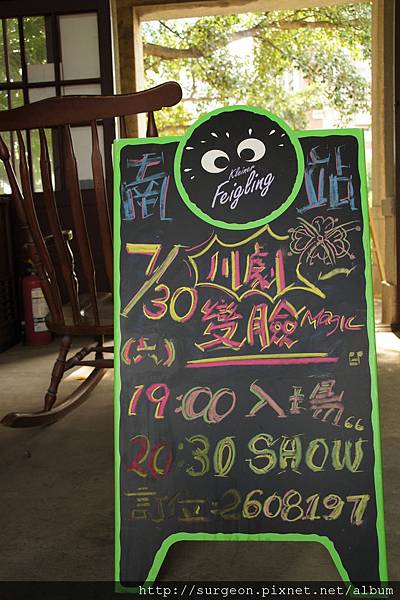 Kleiner
Feigling
南 站
7/30 川劇
變臉 MAGIC
(六)
19:00 入場
20:30 SHOW
訂位:2608197
http://surgeon.pixnet.net/album